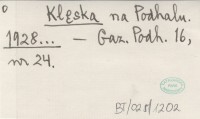 Klęska na Podhalu.
1928... — Gaz. Podh. 16,
nr 24.
BJ/02f/1202